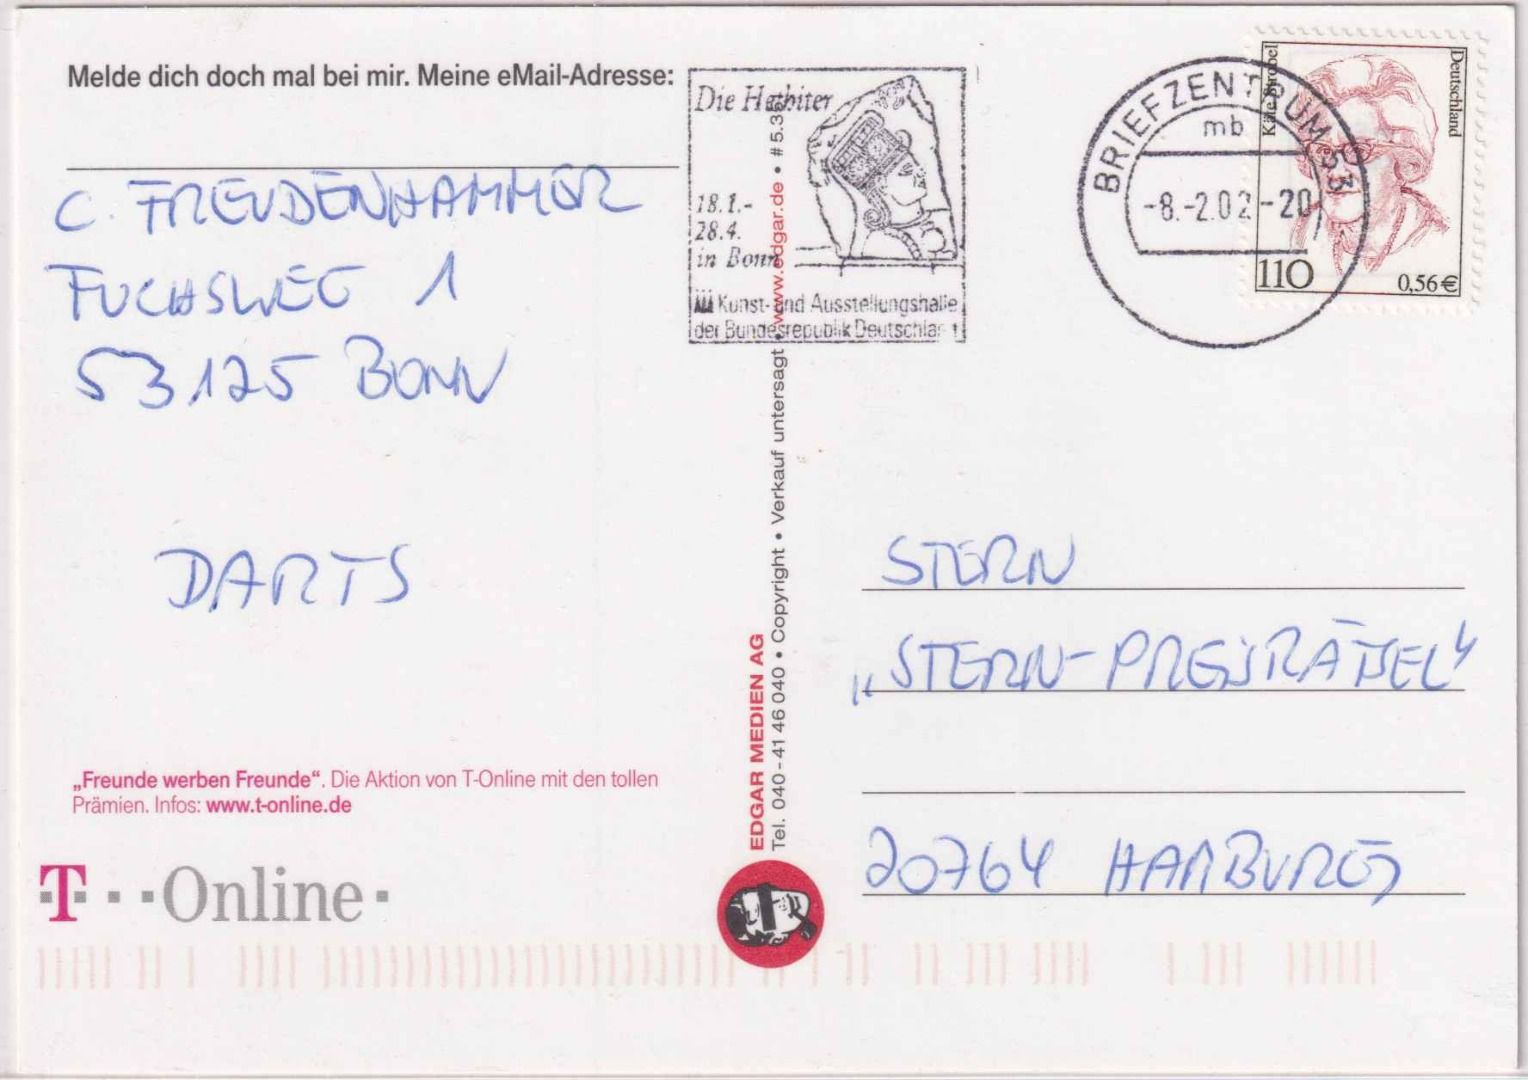 Melde dich doch mal bei mir. Meine eMail-Adresse:
C. FREUDENHAMMER
FUCHSWEG 1
53125 BONN
DARTS
„Freunde werben Freunde“. Die Aktion von T-Online mit den tollen
Prämien. Infos: www.t-online.de
T Online
Die Hethiter
18.1.-
28.4.
in Bonn
Kunst- und Ausstellungshalle
der Bundesrepublik Deutschland
EDGAR MEDIEN AG
Tel. 040-41 46 040 • Copyright • Verkauf untersagt • www.edgar.de • # 5.3
BRIEFZENTRUM 53
mb
-8.-2.02-20
Käte Strobel
Deutschland
110
0,56€
STERN
„STERN-PREISRÄTSEL“
20764 HAMBURG